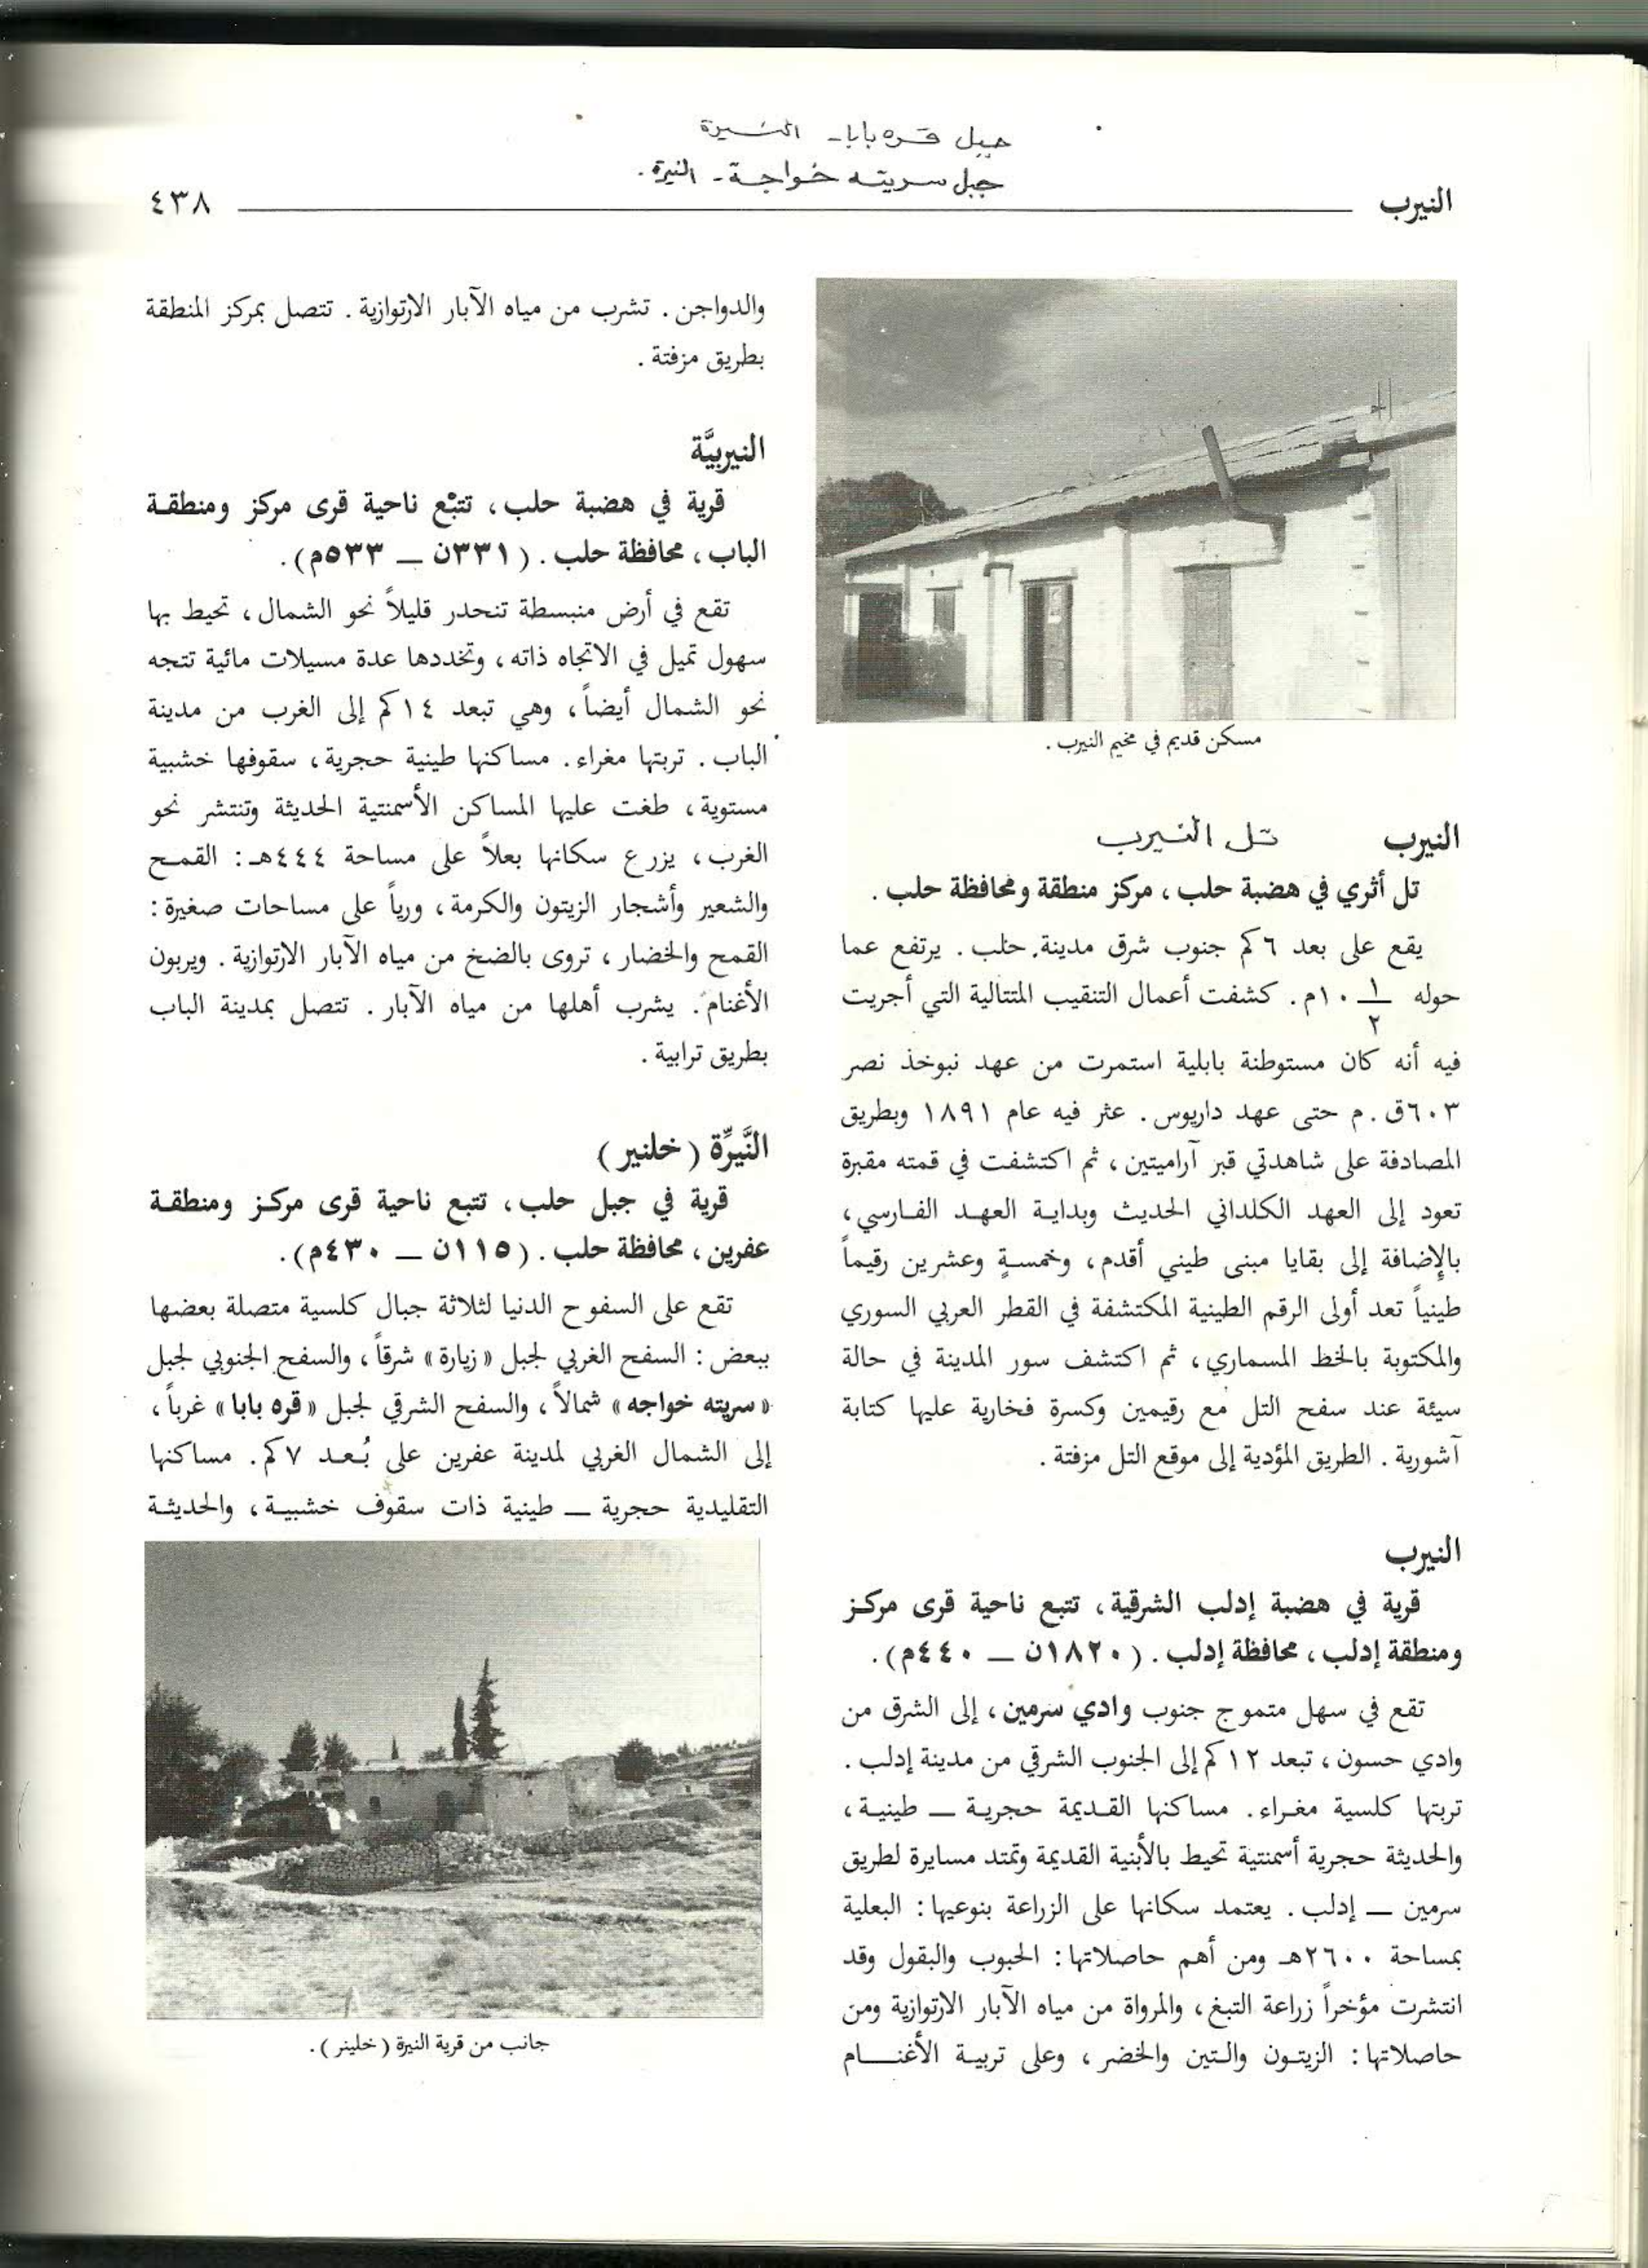 جبل قره بابا - النيرة
جبل سريته خواجة - النيرة.
النيرب
٤٣٨
مسكن قديم في مخيم النيرب .
النيرب تل النيرب
تل أثري في هضبة حلب ، مركز منطقة ومحافظة حلب .
يقع على بعد ٦ كم جنوب شرق مدينة حلب . يرتفع عما
حوله ١/٢ ١٠م . كشفت أعمال التنقيب المتتالية التي أجريت
فيه أنه كان مستوطنة بابلية استمرت من عهد نبوخذ نصر
٦٠٣ق.م حتى عهد داريوس . عثر فيه عام ١٨٩١ وبطريق
المصادفة على شاهدتي قبر آراميتين ، ثم اكتشفت في قمته مقبرة
تعود إلى العهد الكلداني الحديث وبداية العهد الفارسي ،
بالإضافة إلى بقايا مبنى طيني أقدم ، وخمسةٍ وعشرين رقيماً
طينياً تعد أولى الرقم الطينية المكتشفة في القطر العربي السوري
والمكتوبة بالخط المسماري ، ثم اكتشف سور المدينة في حالة
سيئة عند سفح التل مع رقيمين وكسرة فخارية عليها كتابة
آشورية . الطريق المؤدية إلى موقع التل مزفتة .
النيرب
قرية في هضبة إدلب الشرقية ، تتبع ناحية قرى مركز
ومنطقة إدلب ، محافظة إدلب . (١٨٢٠ن — ٤٤٠م) .
تقع في سهل متموج جنوب وادي سرمين ، إلى الشرق من
وادي حسون ، تبعد ١٢ كم إلى الجنوب الشرقي من مدينة إدلب .
تربتها كلسية مغراء . مساكنها القديمة حجرية — طينية ،
والحديثة حجرية أسمنتية تحيط بالأبنية القديمة وتمتد مسايرة لطريق
سرمين — إدلب . يعتمد سكانها على الزراعة بنوعيها : البعلية
بمساحة ٢٦٠٠هـ ومن أهم حاصلاتها : الحبوب والبقول وقد
انتشرت مؤخراً زراعة التبغ ، والمرواة من مياه الآبار الارتوازية ومن
حاصلاتها : الزيتون والتين والخضر ، وعلى تربية الأغنام
والدواجن . تشرب من مياه الآبار الارتوازية . تتصل بمركز المنطقة
بطريق مزفتة .
النيربيَّة
قرية في هضبة حلب ، تتبْع ناحية قرى مركز ومنطقة
الباب ، محافظة حلب . (٣٣١ن — ٥٣٣م) .
تقع في أرض منبسطة تنحدر قليلاً نحو الشمال ، تحيط بها
سهول تميل في الاتجاه ذاته ، وتخددها عدة مسيلات مائية تتجه
نحو الشمال أيضاً ، وهي تبعد ١٤ كم إلى الغرب من مدينة
الباب . تربتها مغراء . مساكنها طينية حجرية ، سقوفها خشبية
مستوية ، طغت عليها المساكن الأسمنتية الحديثة وتنتشر نحو
الغرب ، يزرع سكانها بعلاً على مساحة ٤٤٤هـ : القمح
والشعير وأشجار الزيتون والكرمة ، ورياً على مساحات صغيرة :
القمح والخضار ، تروى بالضخ من مياه الآبار الارتوازية . ويربون
الأغنام . يشرب أهلها من مياه الآبار . تتصل بمدينة الباب
بطريق ترابية .
النَّيرِّة (خلنير)
قرية في جبل حلب ، تتبع ناحية قرى مركز ومنطقة
عفرين ، محافظة حلب . (١١٥ن — ٤٣٠م) .
تقع على السفوح الدنيا لثلاثة جبال كلسية متصلة بعضها
ببعض : السفح الغربي لجبل «زيارة» شرقاً ، والسفح الجنوبي لجبل
«سريته خواجه» شمالاً ، والسفح الشرقي لجبل «قره بابا» غرباً ،
إلى الشمال الغربي لمدينة عفرين على بُعد ٧ كم . مساكنها
التقليدية حجرية — طينية ذات سقوف خشبية ، والحديثة
جانب من قرية النيرة (خلينر) .